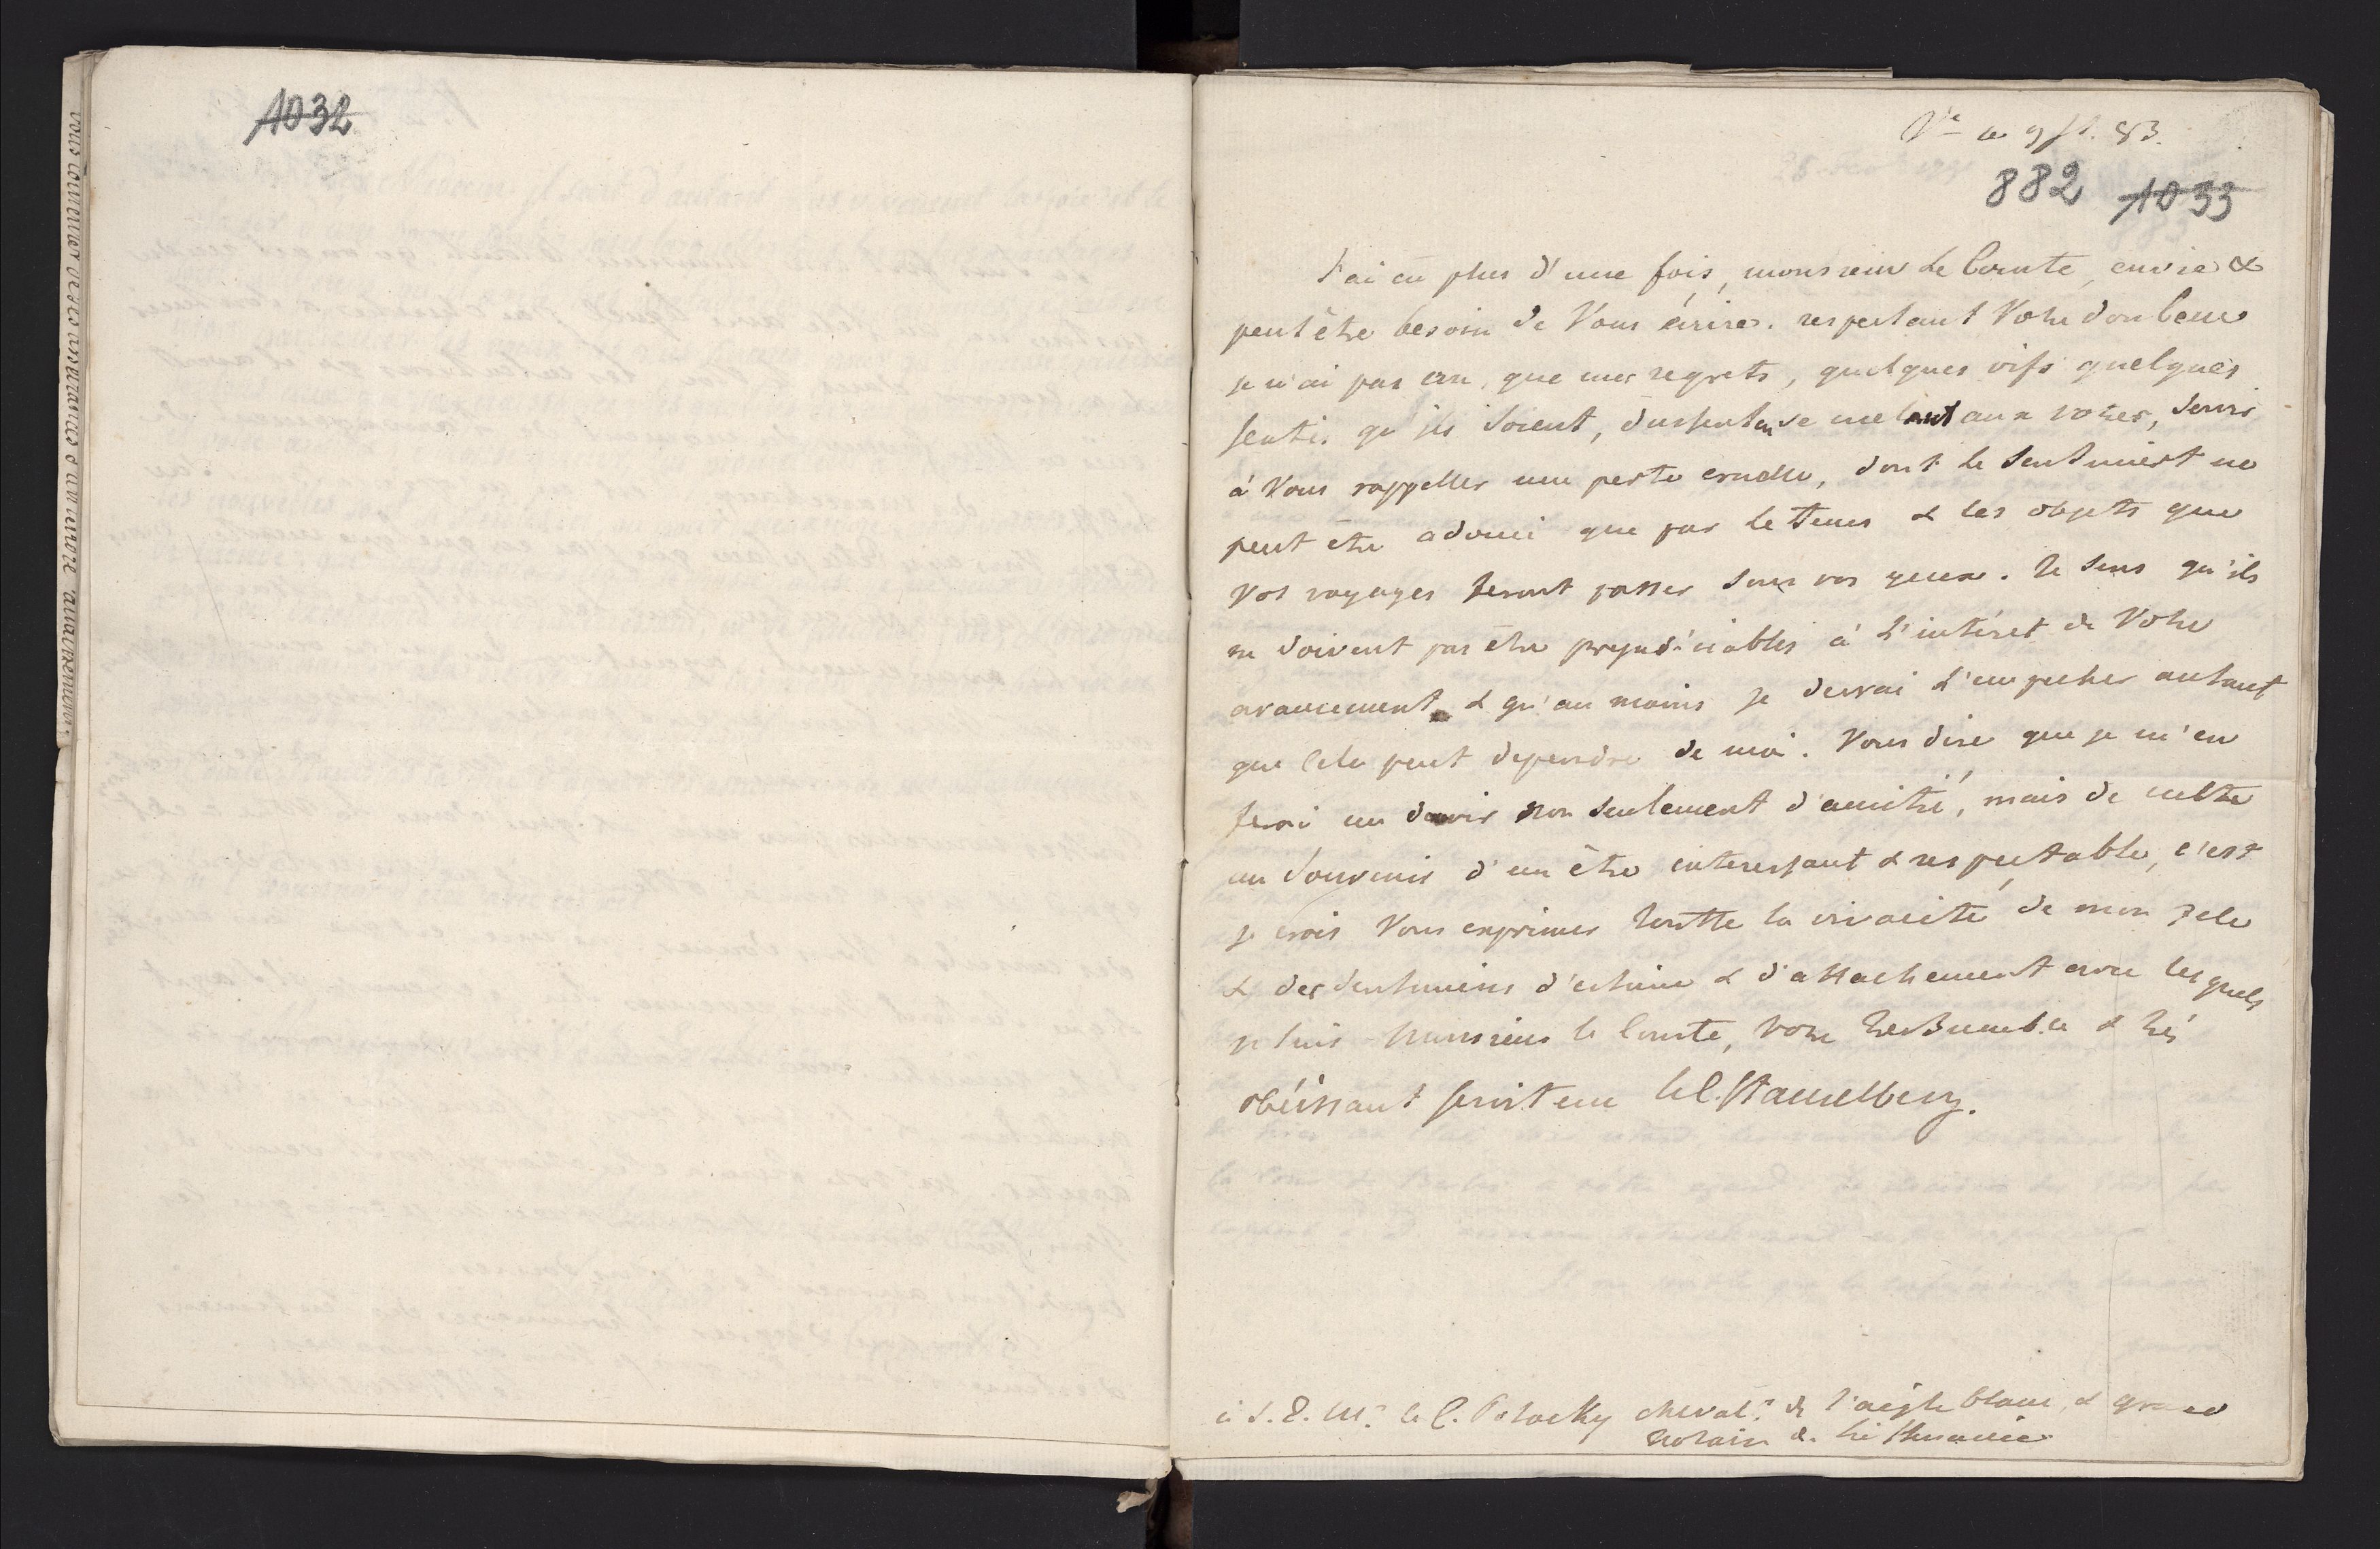 1032
vous renouveller des assurances d'un tendre attachement.
Vie ce 9 fl. 83.
882 1033
J'ai eu plus d'une fois, monsieur le Comte, envie &
peut être besoin de Vous écrire. respectant Votre douleur
je n'ai pas cru, que mes regrets, quelques vifs quelques
sentis qu'ils soient, dussent en se melant aux votres, servir
à Vous rappeller une perte cruelle, dont le sentiment ne
peut être adouci que par le tems & les objets que
vos voyages feront passer sous vos yeux. Je sens qu'ils
ne doivent pas être prejudiciables à l'intéret de Votre
avancement & qu'au moins je devrai l'empecher autant
que cela peut dependre de moi. Vous dire que je m'en
ferai un devoir non seulement d'amitié, mais de culte
au souvenir d'un être interessant & respectable, c'est
je crois Vous exprimer toutte la vivacité de mon zele
& des sentimens d'estime & d'attachement avec lesquels
je suis Monsieur le Comte, votre tres humble & très
obéissant serviteur le C. Stackelberg.
à S. E. Mr. le C. Potocky cheval. de l'aigle blanc, & grand
notaire de Lithuanie